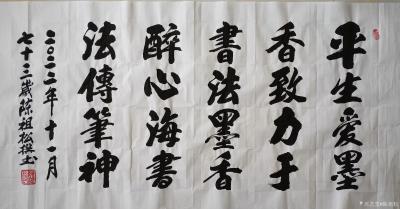 平生爱墨
香致力于
書法墨香
醉心海書
法傳筆神
二〇二二年十一月
七十三歲陈祖松撰书